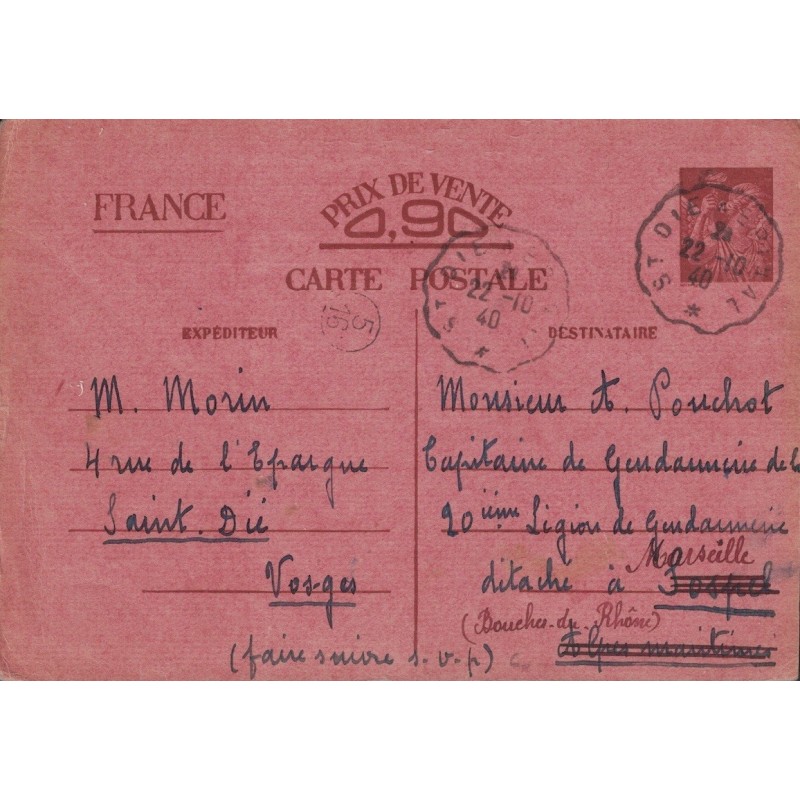 FRANCE
PRIX DE VENTE
0,90
CARTE POSTALE
ST DIE
22-10
40
ST DIE
22-10
40
5
15
EXPÉDITEUR
M. Morin
4 rue de l'Epargne
Saint. Dié
Vosges
(faire suivre s.v.p)
DESTINATAIRE
Monsieur A. Pouchot
Capitaine de Gendarmerie de la
20ième Légion de Gendarmerie
Marseille
détaché à Sospel
(Bouches-du-Rhône)
Alpes maritimes